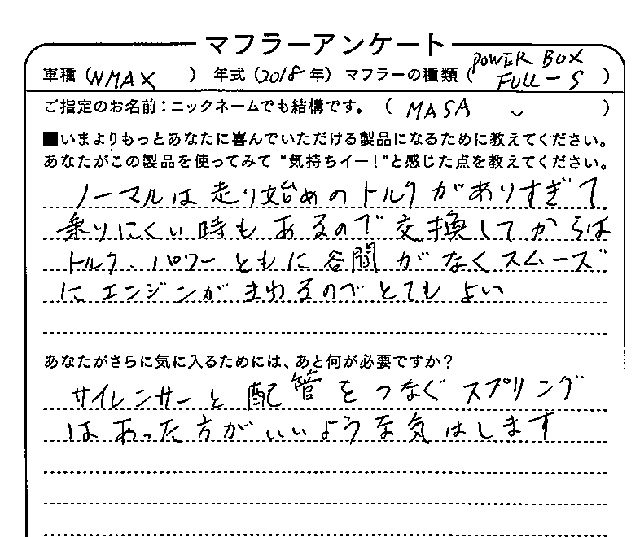 マフラーアンケート
車種（NMAX　　）年式（2018年）マフラーの種類（POWER BOX FULL-S）
ご指定のお名前：ニックネームでも結構です。（ MASA ）
■いまよりもっとあなたに喜んでいただける製品になるために教えてください。
あなたがこの製品を使ってみて“気持ちイー！”と感じた点を教えてください。
ノーマルは走り始めのトルクがありすぎて
乗りにくい時もあるので交換してからは
トルク、パワーともに谷間がなくスムーズ
にエンジンがまわるのでとてもよい
あなたがさらに気に入るためには、あと何が必要ですか？
サイレンサーと配管をつなぐスプリング
はあった方がいいような気はします